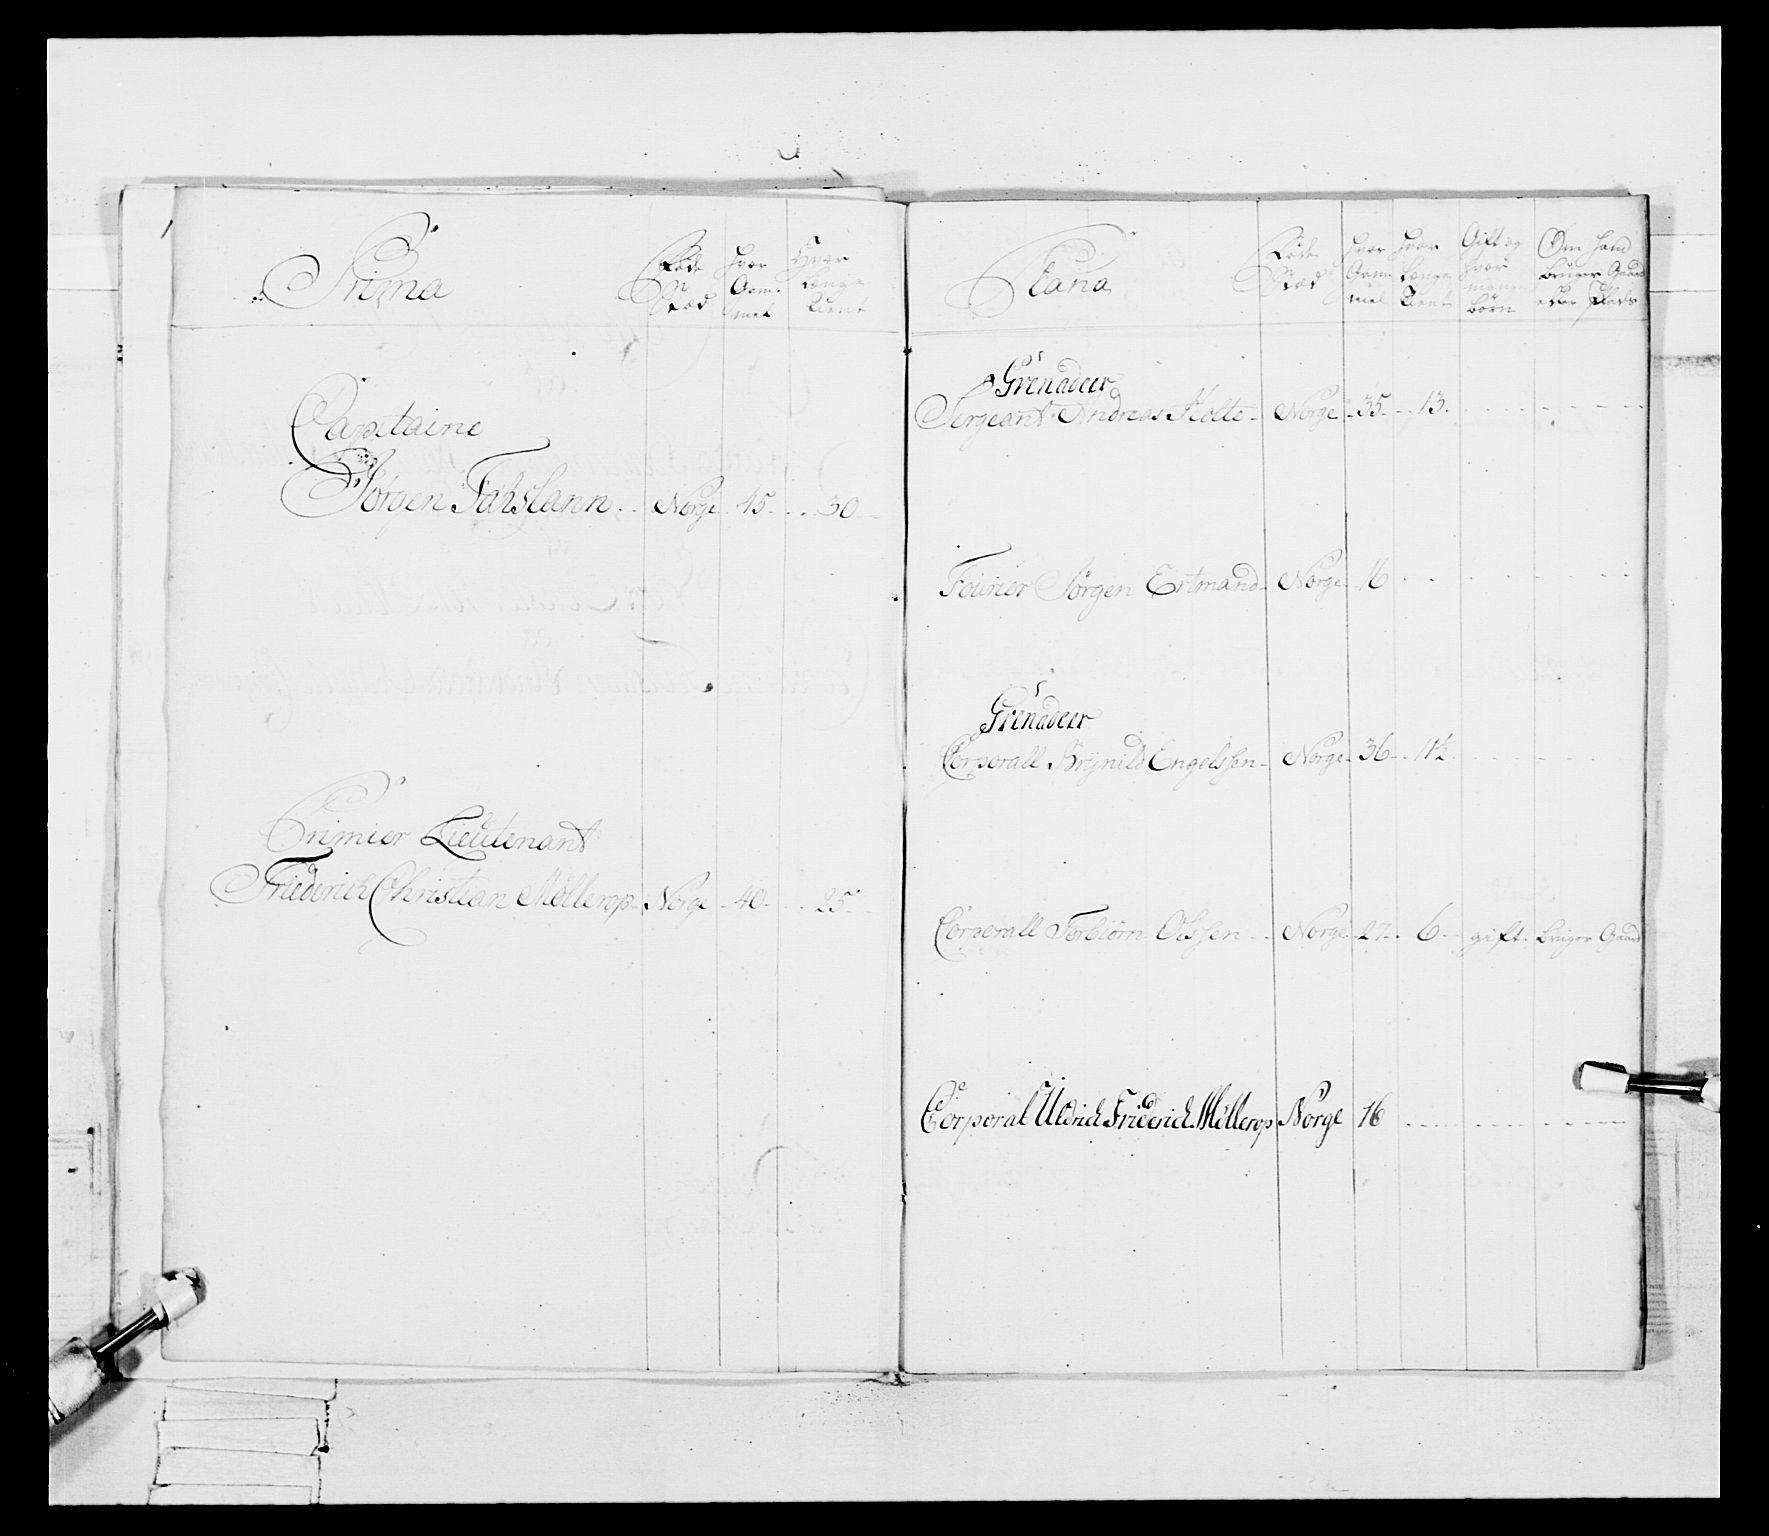 Prima
Føde Stæd
Hvor Gammel
Hvor længe Tient
Capitaine
Jörgen Fahslann. Norge 45. 30
Primier Lieutenant
Friederich Christian Möllerop. Norge 40. 25.
Plana
Føde Stæd
Hvor Gammel
Hvor længe Tient
Gift og hvor mange börn
Om hand bruger Gaard eller Plads
Grenadeer
Sergeant Andreas Holte. Norge. 35. 13.
Fourier Jörgen Ertmand. Norge. 16
Grenadeer
Corporall Brynild Engelssen. Norge. 36. 11½
Corporall Torbiörn Olssen. Norge. 27. 6. gift. bruger Gaard
Corporal Uldrich Friderich Möllerop Norge 16